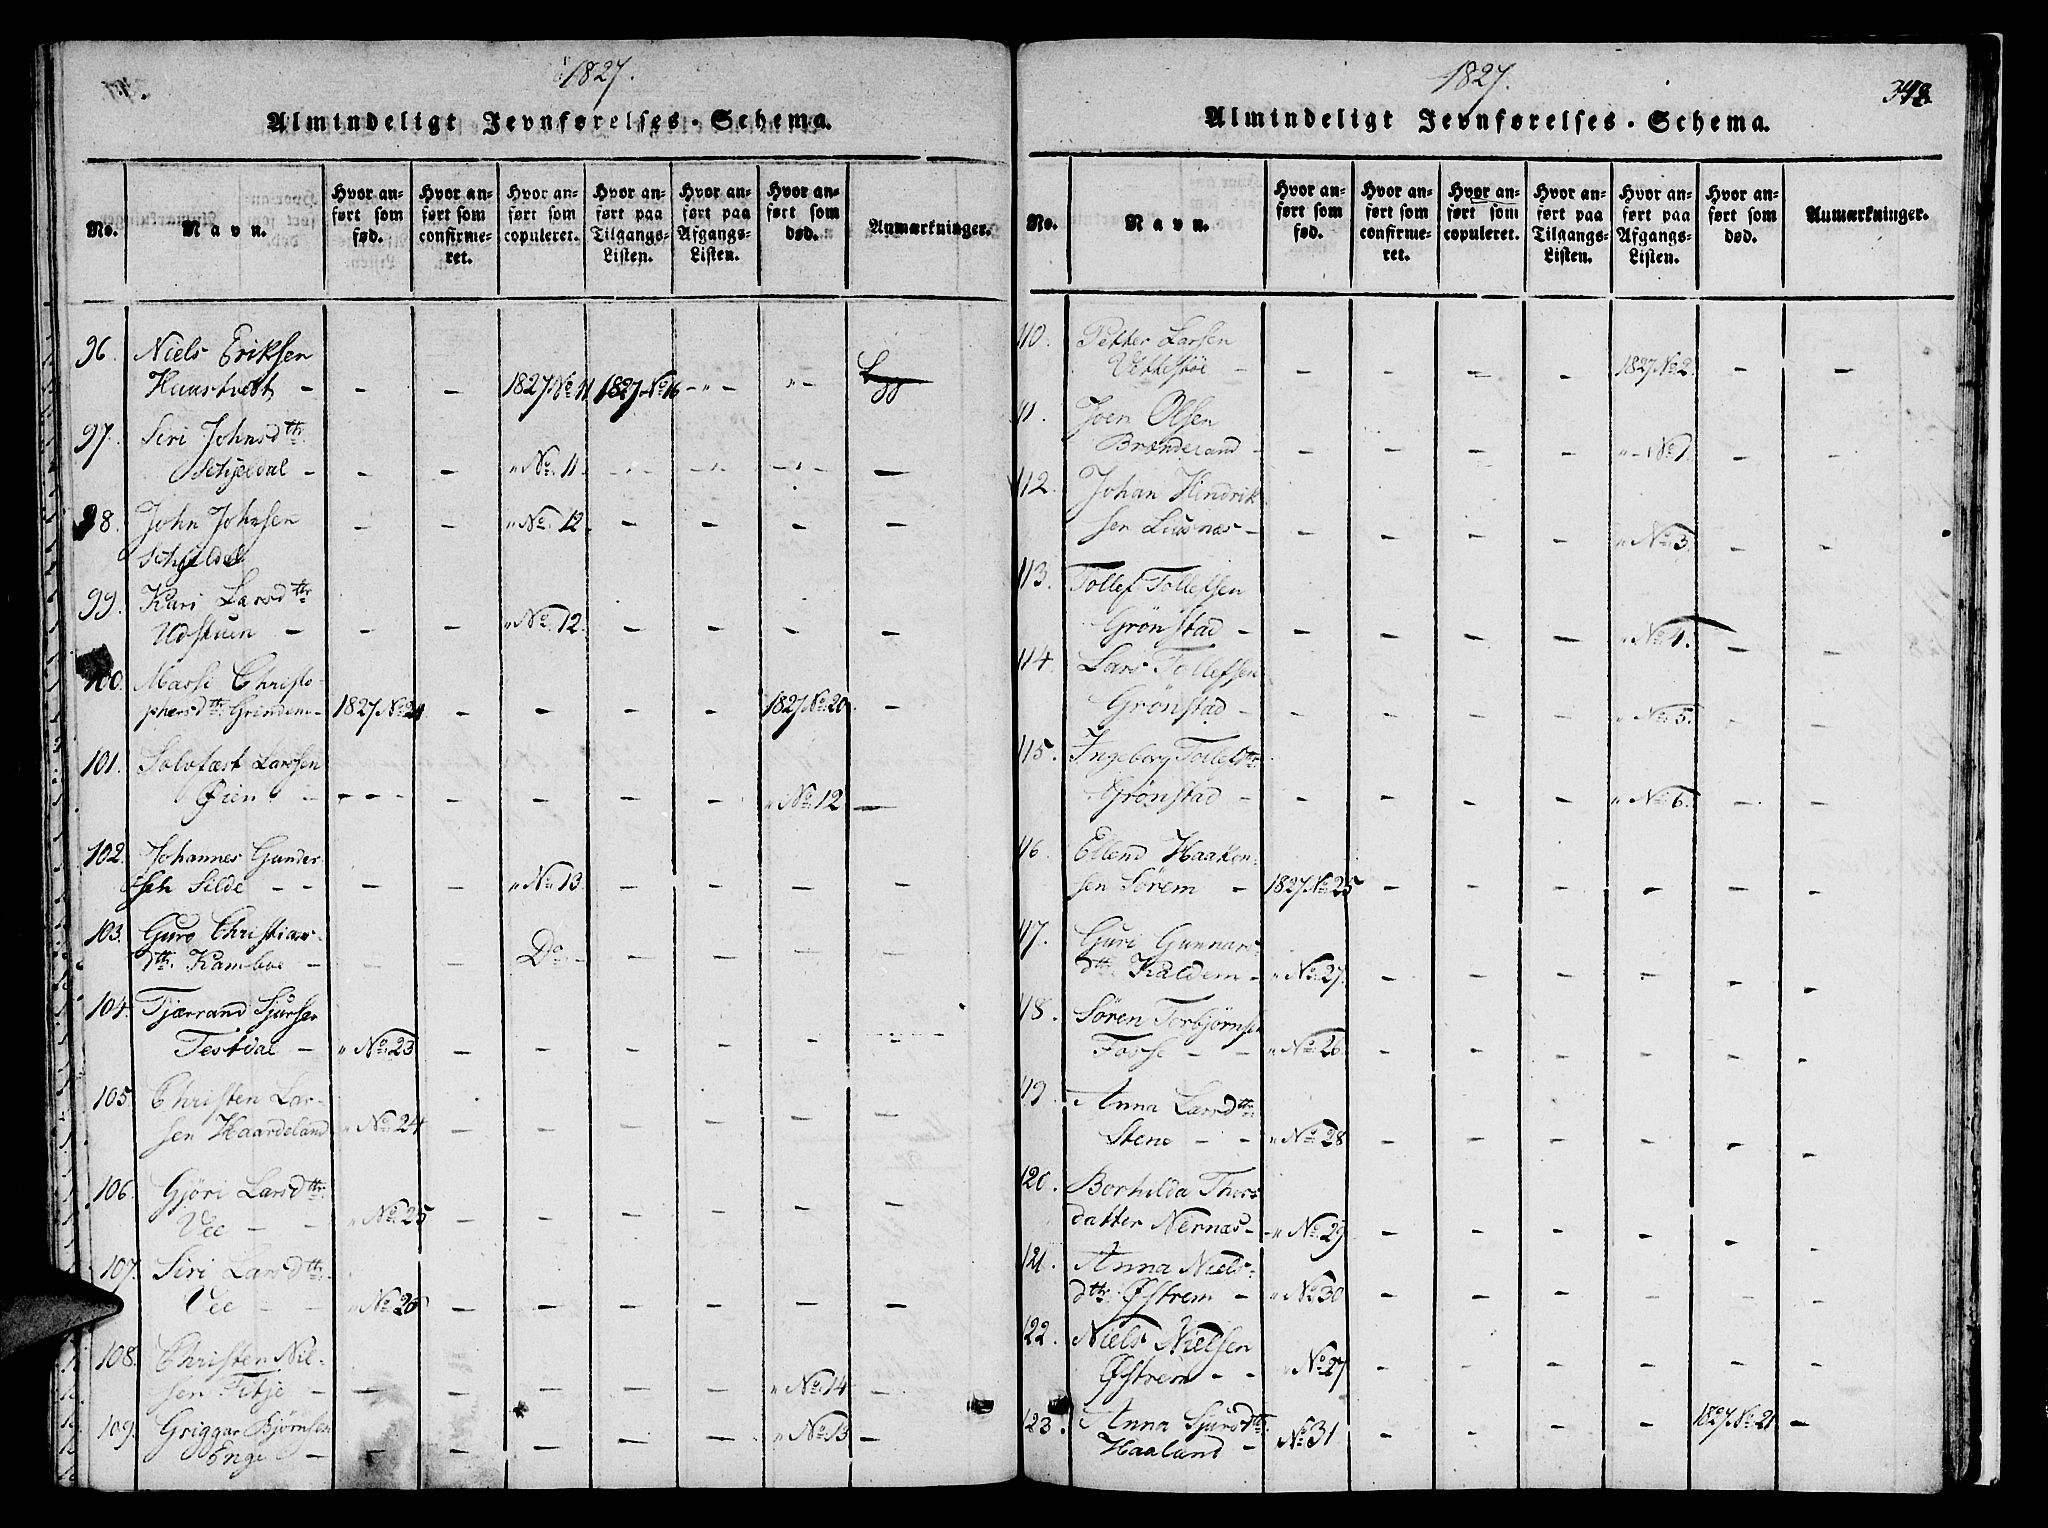 1827.
Almindeligt Jevnførelses-Schema.
No. Navn. Hvor anført som fød. Hvor anført som confirmeret. Hvor anført som copuleret. Hvor anført paa Tilgangs-Listen. Hvor anført paa Afgangs-Listen. Hvor anført som død. Anmærkninger.
96. Niels Eriksen
Haustvedt - - - 1827.No 11 1827.No 16 - „ - „ -
97. Siri Johnsdttr
Schjeldal - - - „ No. 11. - - - -
98. John Johnsen - - „ No. 12. - - - -
Schjeldal
99. Kari Larsdttr
Udstuen - - - „ No. 12. - - - -
100. Massi Christo-
phersdttr Grindem - 1827.No 24 - - - - 1827.No. 20 -
101. Solvfæst Larssen
Øien - - - - - - - „ No. 12. -
102. Johannes Gunder-
sen Silde - - - - „ No. 13 - - - -
103. Guro Christians-
dttr. Kamboe - - - Do - - - -
104. Tjærrand Sjursen
Testdal - „ No. 23 - - - - - -
105. Christen Lar-
sen Haardeland „ No. 24 - - - - - -
106. Gjöri Larsdttr
Vee - - „ No. 25 - - - - - -
107. Siri Larsdttr
Vee - - „ No. 26 - - - - - -
108. Christen Nil-
sen Fitje - - - - - - „ No. 14 -
109. Griggar Björnsen
Enge - - - - - - „ No. 13 -
1827.
348.
Almindeligt Jevnførelses-Schema.
No. Navn. Hvor anført som fød. Hvor anført som confirmeret. Hvor anført som copuleret. Hvor anført paa Tilgangs-Listen. Hvor anført paa Afgangs-Listen. Hvor anført som død. Anmærkninger.
110. Petter Larsen
Vettestöe - - - - - 1827.No 2. - -
111. Joen Olsen
Brænderland - - - - - „ - No 1. - -
112. Johan Hindrik
sen Lusnæs - - - - - „ No. 3. - -
113. Tollef Tollefsen
Grönstad - - - - - „ No. 4. - -
114. Lars Tollefsen
Grönstad - - - - - „ No. 5. - -
115. Ingeborg Tollefsdttr
Grönstad - - - - - „ No. 6. - -
116. Ellend Haaken-
sen Sörem - 1827.No. 25 - - - - - -
117. Guri Gunnars-
dttr Kaldem - „ No. 27. - - - - - -
118. Sören Torbjörnsen
Fosse - - „ No. 26. - - - - - -
119. Anna Larsdttr
Stene - - „ No. 28 - - - - - -
120. Borhilda Thors
datter Nernæs - „ No. 29 - - - - - -
121. Anna Niels-
dttr. Østrem - „ No. 30 - - - - - -
122. Niels Nielsen
Østrem - - „ No. 27 - - - - - -
123. Anna Sjursdttr
Haaland - No. 31 - - - - 1827.No. 21 -